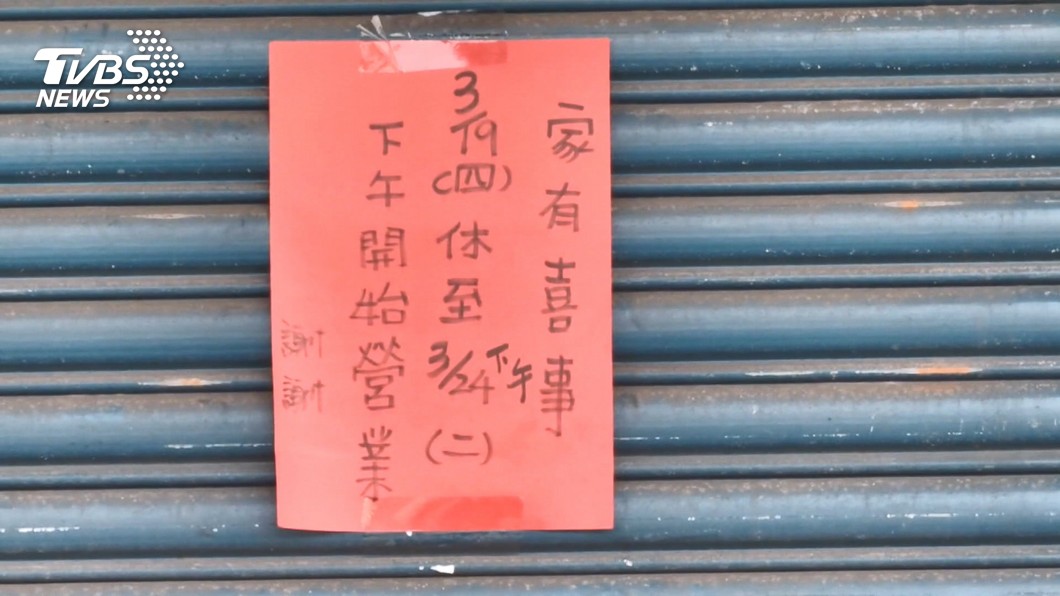 TVBS
NEWS
家有喜事
3/19(四)休至3/24下午(二)
下午開始營業
謝謝